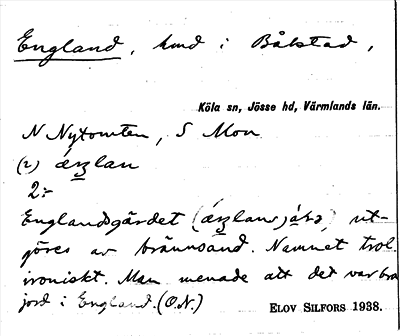 England, hmd i Bålstad,
Köla sn, Jösse hd, Värmlands län.
N Nytomten, S Mon
(2) áŋlan
2:-
Englandsgärdet ( ut-
göres av brännsand. Namnet trol.
ironiskt. Man menade att det var bra
jord i England. (O.N.)
ELOV SILFORS 1938.